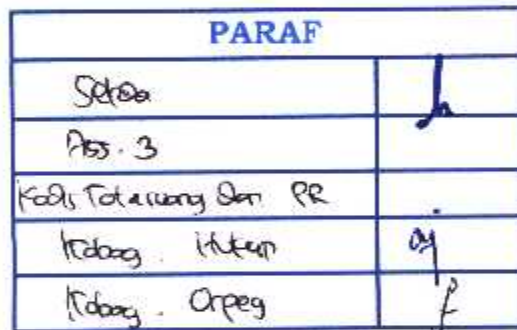 PARAF
Sekda
Ass. 3
Kadis Tataruang dan PR
Kabag. Hukum
Kabag. Orpeg